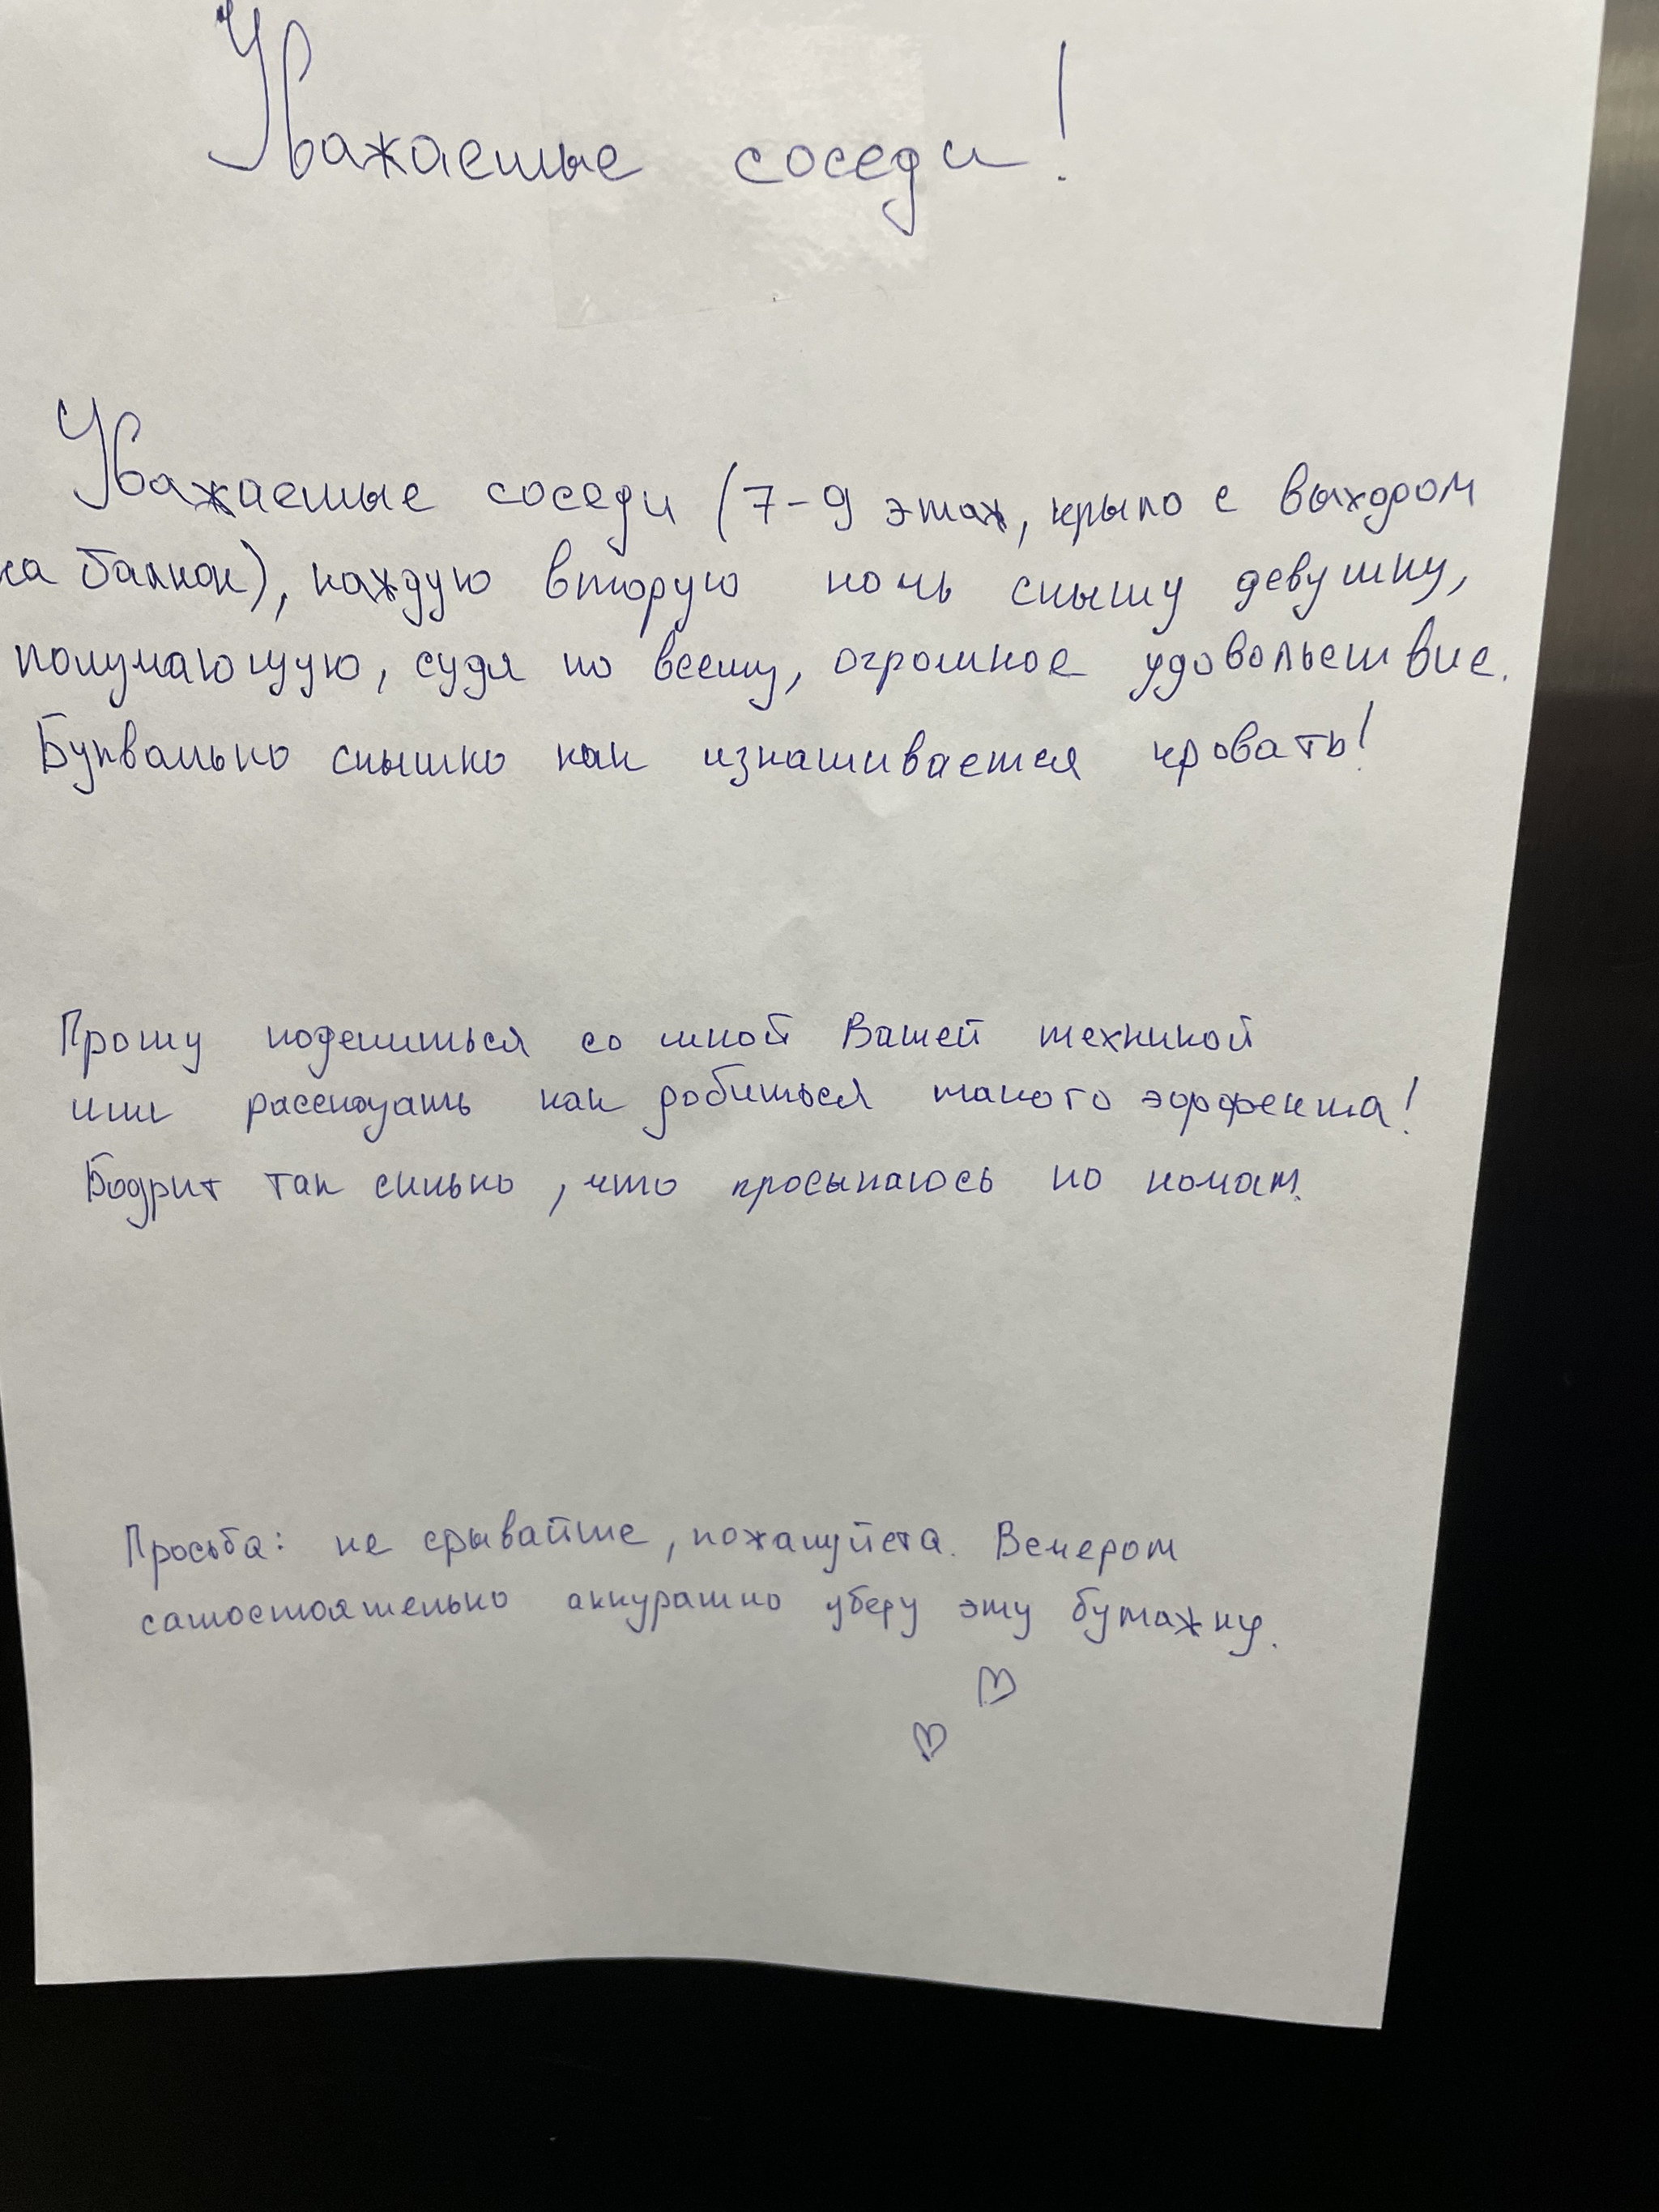 Уважаемые соседи!
Уважаемые соседи (7-9 этаж, крыло с выходом
на балкон), каждую вторую ночь слышу девушку,
получающую, судя по всему, огромное удовольствие.
Буквально слышно как изнашивается кровать!
Прошу поделиться со мной Вашей техникой
или рассказать как добиться такого эффекта!
Бодрит так сильно, что просыпаюсь по ночам.
Просьба: не срывайте, пожалуйста. Вечером
самостоятельно аккуратно уберу эту бумажку.